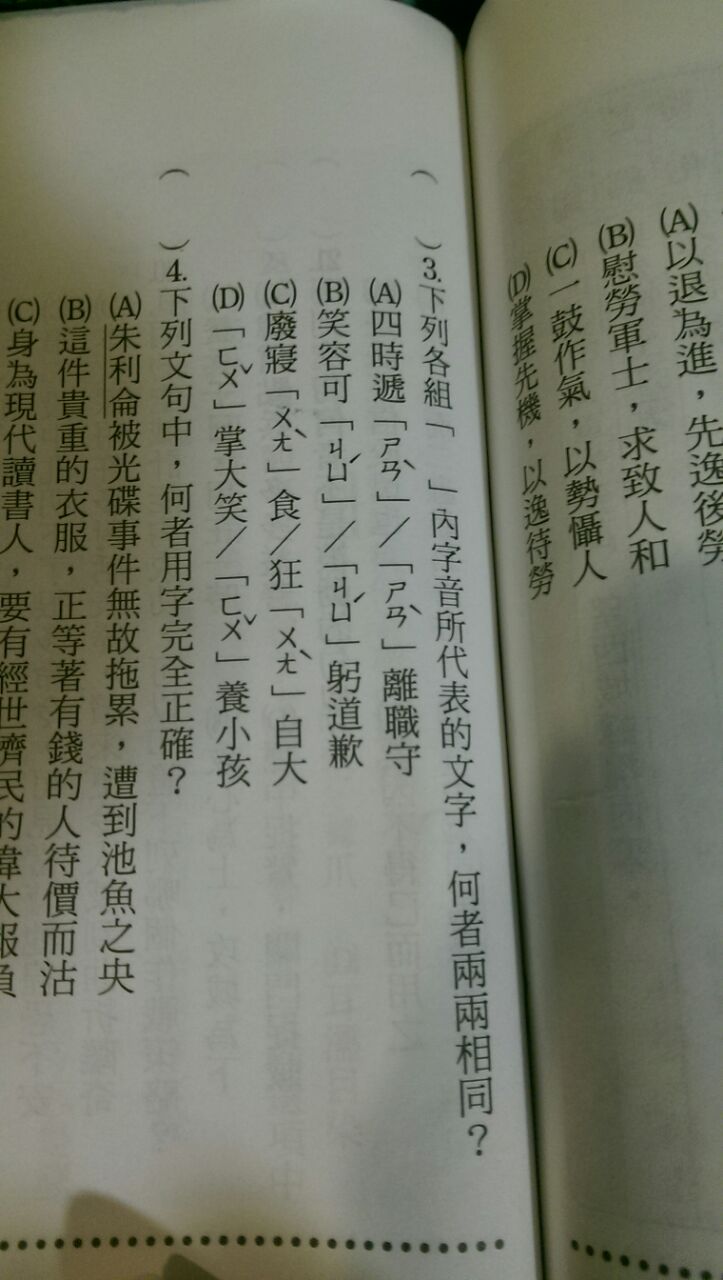 (A)以退為進，先逸後勞
(B)慰勞軍士，求致人和
(C)一鼓作氣，以勢懾人
(D)掌握先機，以逸待勞
（　）3.下列各組「　」內字音所代表的文字，何者兩兩相同？
(A)四時遞「ㄕㄢˋ」／「ㄕㄢˋ」離職守
(B)笑容可「ㄐㄩˊ」／「ㄐㄩˊ」躬道歉
(C)廢寢「ㄨㄤˋ」食／狂「ㄨㄤˋ」自大
(D)「ㄈㄨˇ」掌大笑／「ㄈㄨˇ」養小孩
（　）4.下列文句中，何者用字完全正確？
(A)朱利侖被光碟事件無故拖累，遭到池魚之央
(B)這件貴重的衣服，正等著有錢的人待價而沽
(C)身為現代讀書人，要有經世濟民的偉大報負